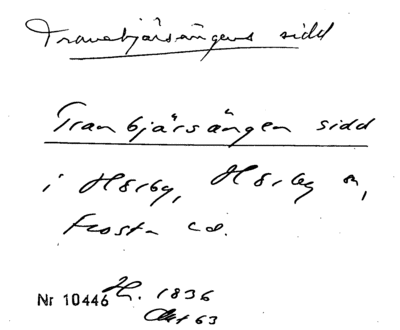 Tranebjärsängens sidd
Tranbjärsängen sidd
i Hörby, Hörby sn,
Frosta hd.
Nr 10446 H. 1836
Akt 63